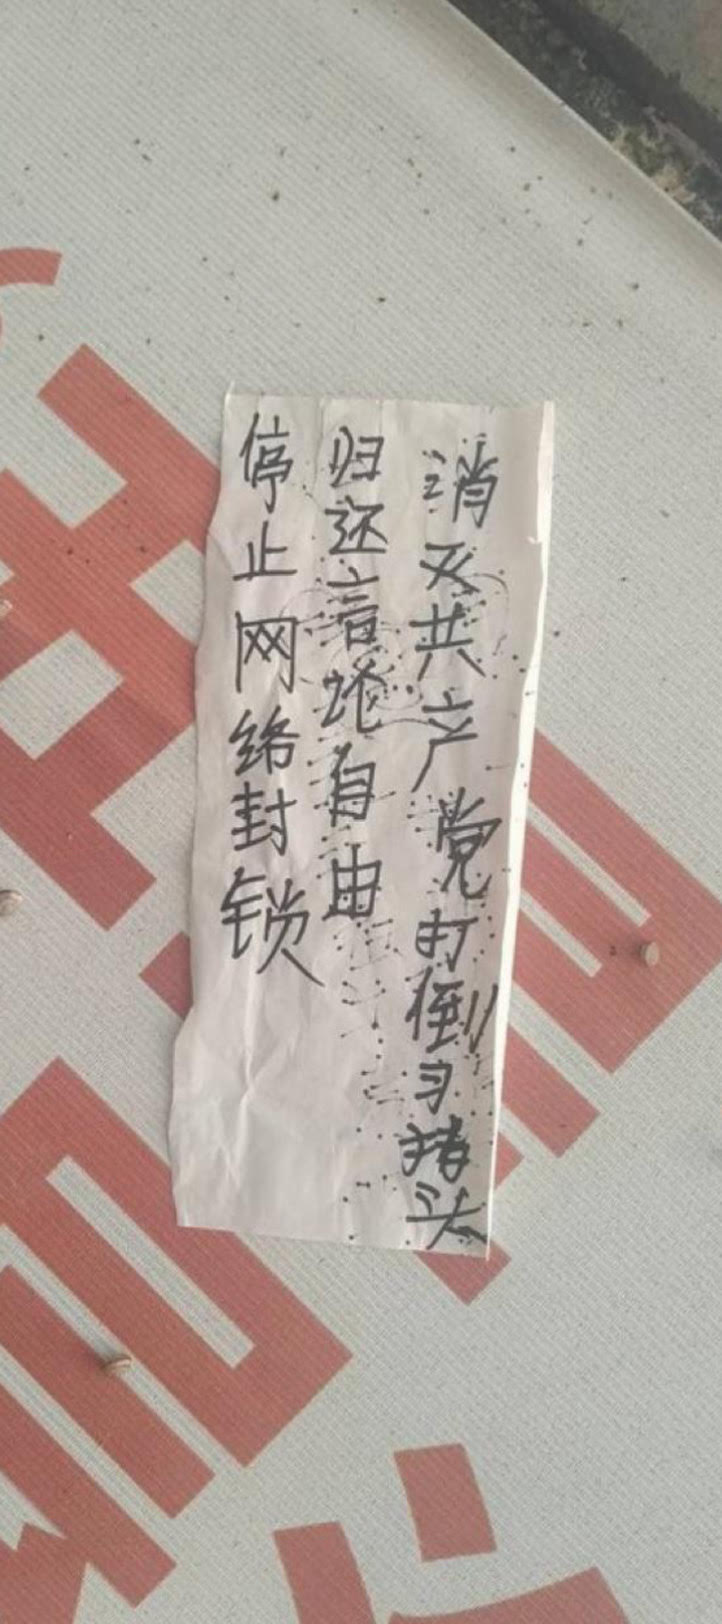 消灭共产党打倒习猪头
归还言论自由
停止网络封锁